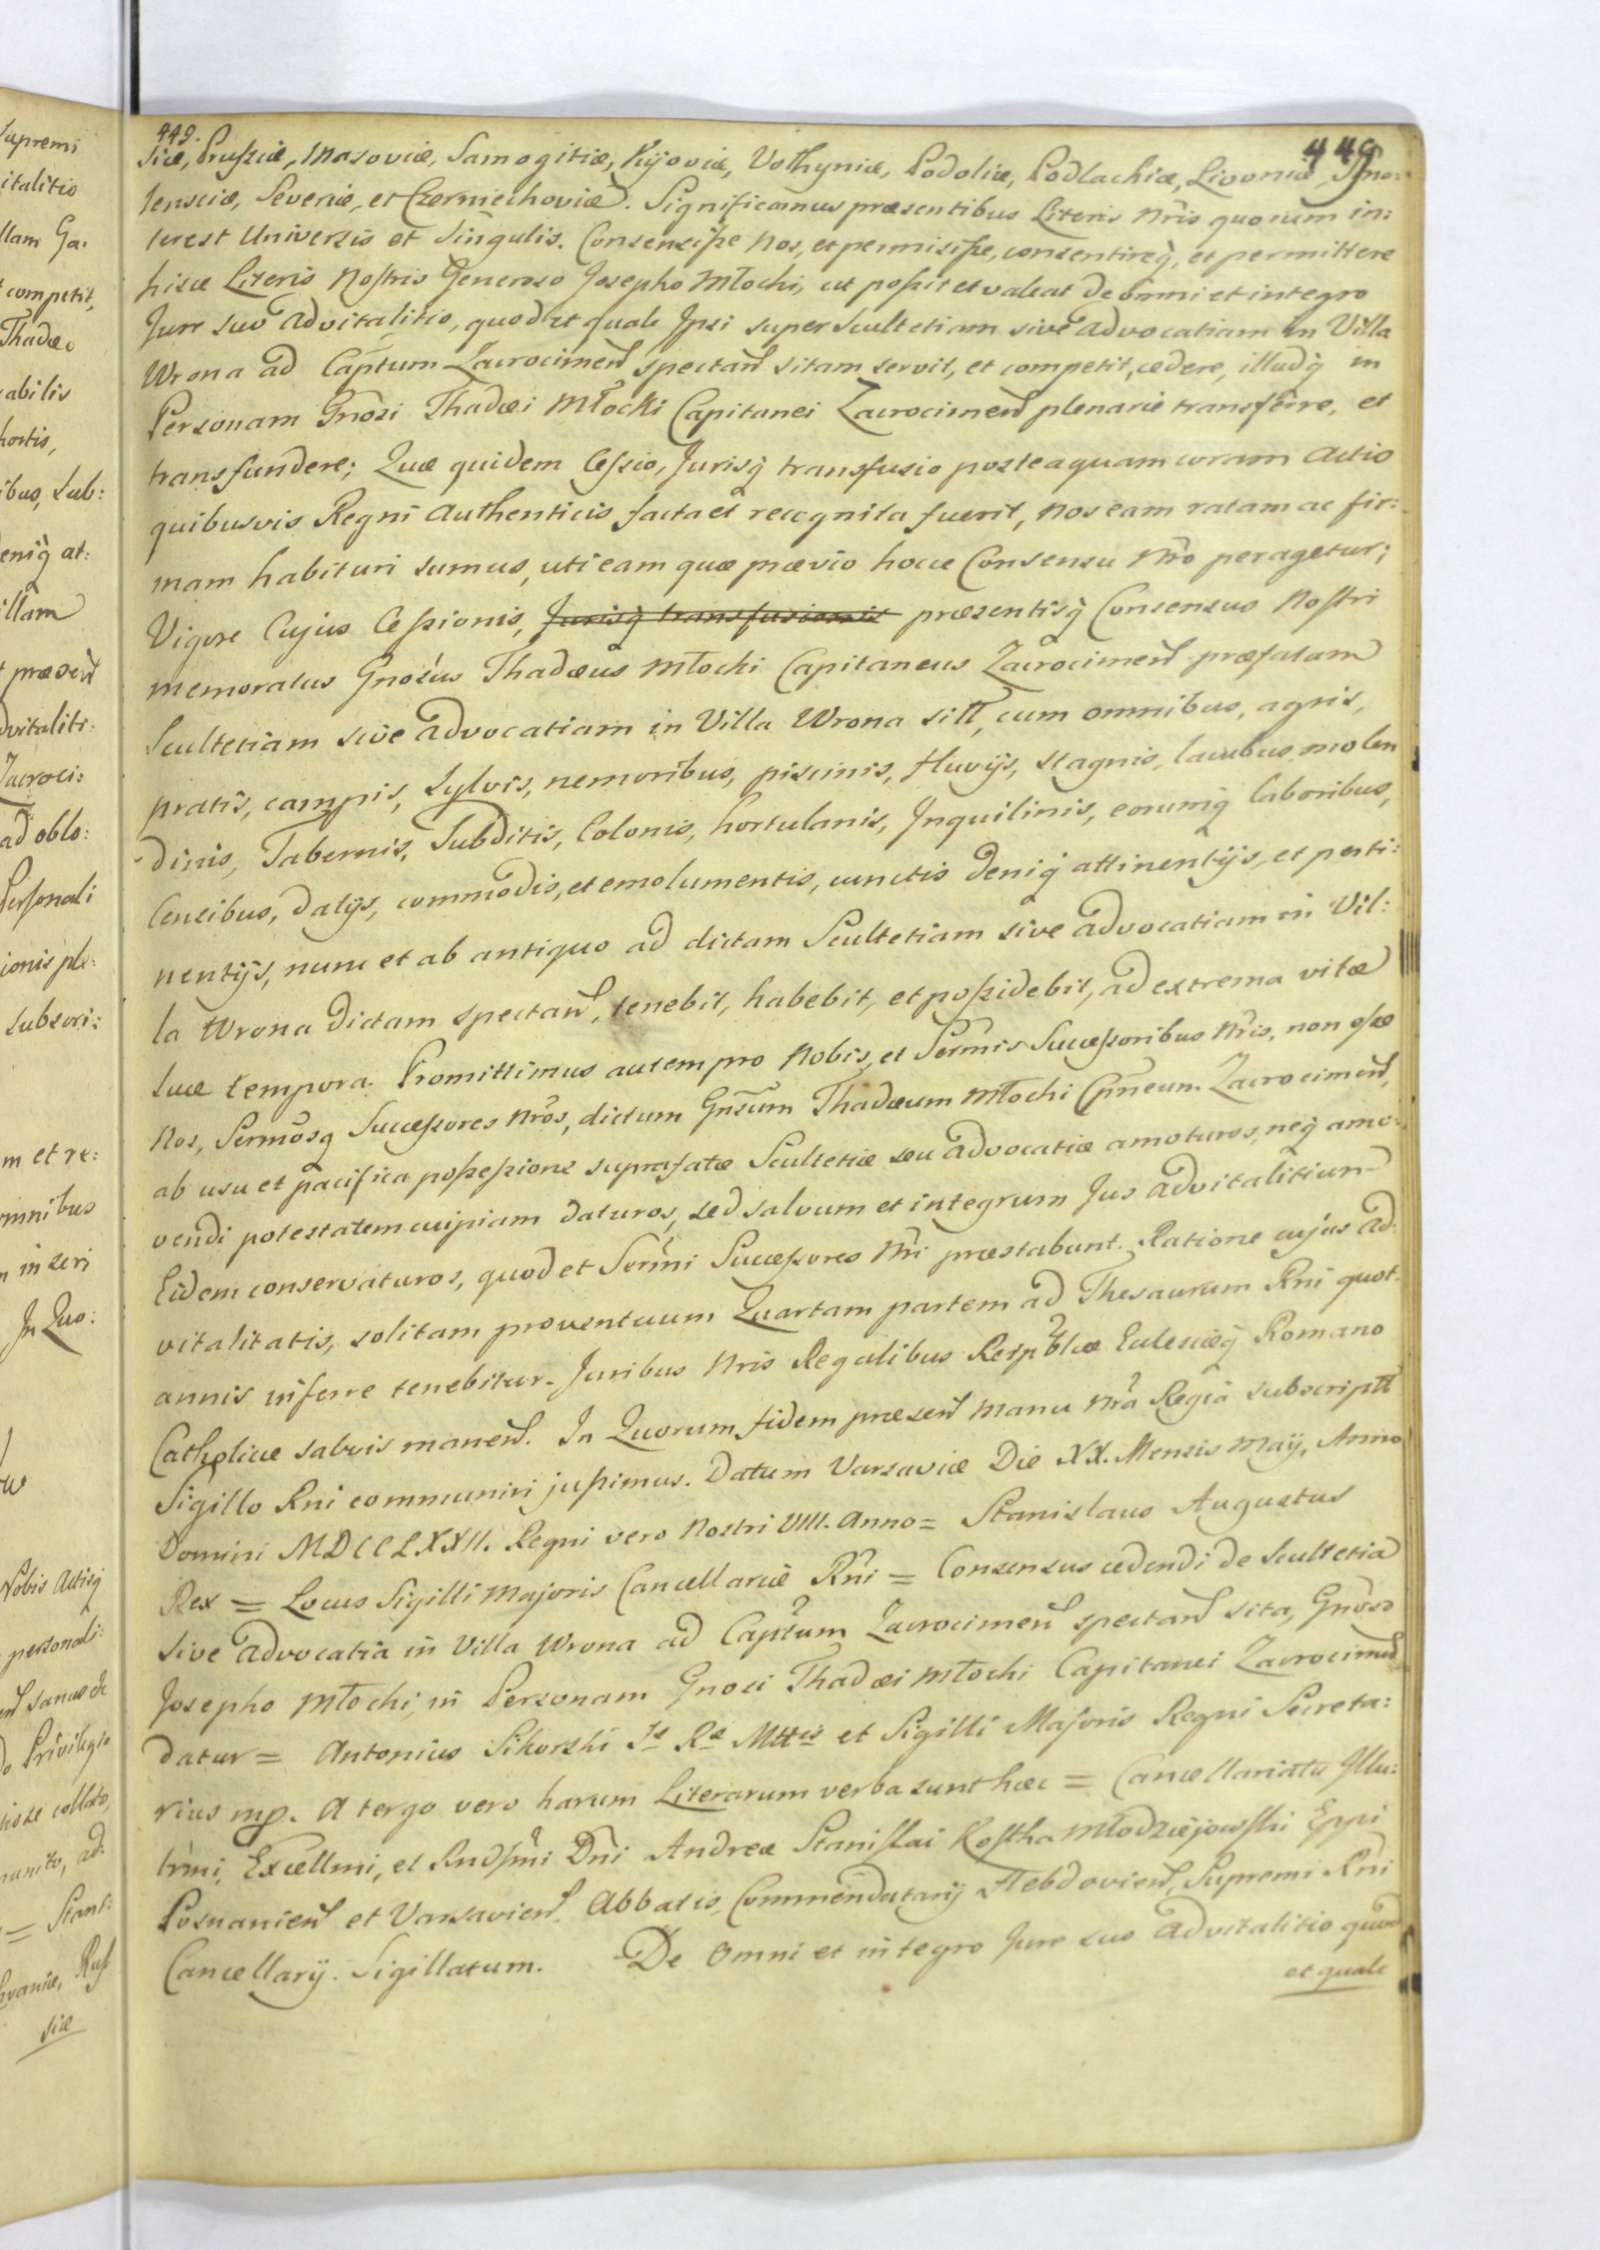 449.
449
siæ, Prussiæ, Masoviæ, Samogitiæ, Kijoviæ, Volhyniæ, Podoliæ, Podlachiæ, Livoniæ, Smo:
lensciæ, Severiæ, et Czerniechoviæ. Significamus præsentibus Literis Nris quorum in:
terest Universis et Singulis. Consensisse Nos, et permisisse, consentireq, et permittere
hisce Literis Nostris Generoso Josepho Młocki, ut possit et valeat de omni et integro
Jure suo advitalitio, quod et quale Ipsi super Scultetiam sive advocatiam in Villa
Wrona ad Captum Zacrocimen spectan sitam servit, et competit, cedere, illudq in
Personam Gnosi Thadæi Młocki Capitanei Zacrocimen plenarie transferre, et
transfundere; Quæ quidem Cessio, Jurisq transfusio posteaquam coram Actis
quibusvis Regni Authenticis facta et recognita fuerit, Nos eam ratam ac fir:
mam habituri sumus, uti eam quæ prævio hocce Consensu Nro peragetur;
Vigore Cujus Cessionis, Jurisq transfusionis præsentisq Consensus Nostri
memoratus Gnosus Thadæus Młocki Capitaneus Zacrocimen præfatam
Scultetiam sive advocatiam in Villa Wrona sitt, cum omnibus, agris,
pratis, campis, sylvis, nemoribus, piscinis, fluvijs, stagnis, lacubus, molen
dinis, Tabernis, Subditis, Colonis, hortulanis, Inquilinis, eorumq laboribus,
Censibus, datijs, commodis, et emolumentis, cunctis deniq attinentijs, et perti:
nentijs, nunc et ab antiquo ad dictam Scultetiam sive advocatiam in Vil:
la Wrona dictam spectan, tenebit, habebit, et possidebit, ad extrema vitæ
suæ tempora. Promittimus autem pro Nobis, et Sermis Successoribus Nris, non esse
Nos, Sermosq Successores Nros, dictum Gnsum Thadæum Młocki Cpneum Zacrocimen,
ab usu et pacifica possessione suprafatæ Scultetiæ seu advocatiæ amoturos, neq amo:
vendi potestatem cuipiam daturos, sed salvum et integrum Jus advitalitium
Eidem conservaturos, quod et Sermi Successores Nri præstabunt. Ratione cujus ad:
vitalitatis, solitam proventuum Quartam partem ad Thesaurum Rni quot
annis inferre tenebitur. Juribus Nris Regalibus Reipblcæ Ecclesiæq Romano
Catholicæ salvis manen. In Quorum fidem præsen manu Nra Regia subscriptt
Sigillo Rni communiri jussimus. Datum Varsaviæ Die XX. Mensis Maij, Anno
Domini MDCCLXXII. Regni vero Nostri VIII. Anno = Stanislaus Augustus
Rex = Locus Sigilli Majoris Cancellariæ Rni = Consensus cedendi de Scultetia
sive advocatia in Villa Wrona ad Captum Zacrocimen spectan sita, Gnoso
Josepho Młocki, in Personam Gnosi Thadæi Młocki Capitanei Zacrocimen
datur = Antonius Sikorski Sæ Ræ Mttis et Sigilli Majoris Regni Secreta:
rius mp. A tergo vero harum Literarum verba sunt hæc = Cancellariatu Illu:
trmi, Excellmi, et Rndsmi Dni Andreæ Stanislai Kostka Młodziejowski Eppi
Posnanien et Varsavien. Abbatis Commendatarij Hebdovien, Supremi Rni
Cancellarij. Sigillatum. De Omni et integro Jure suo advitalitio quod
et quale